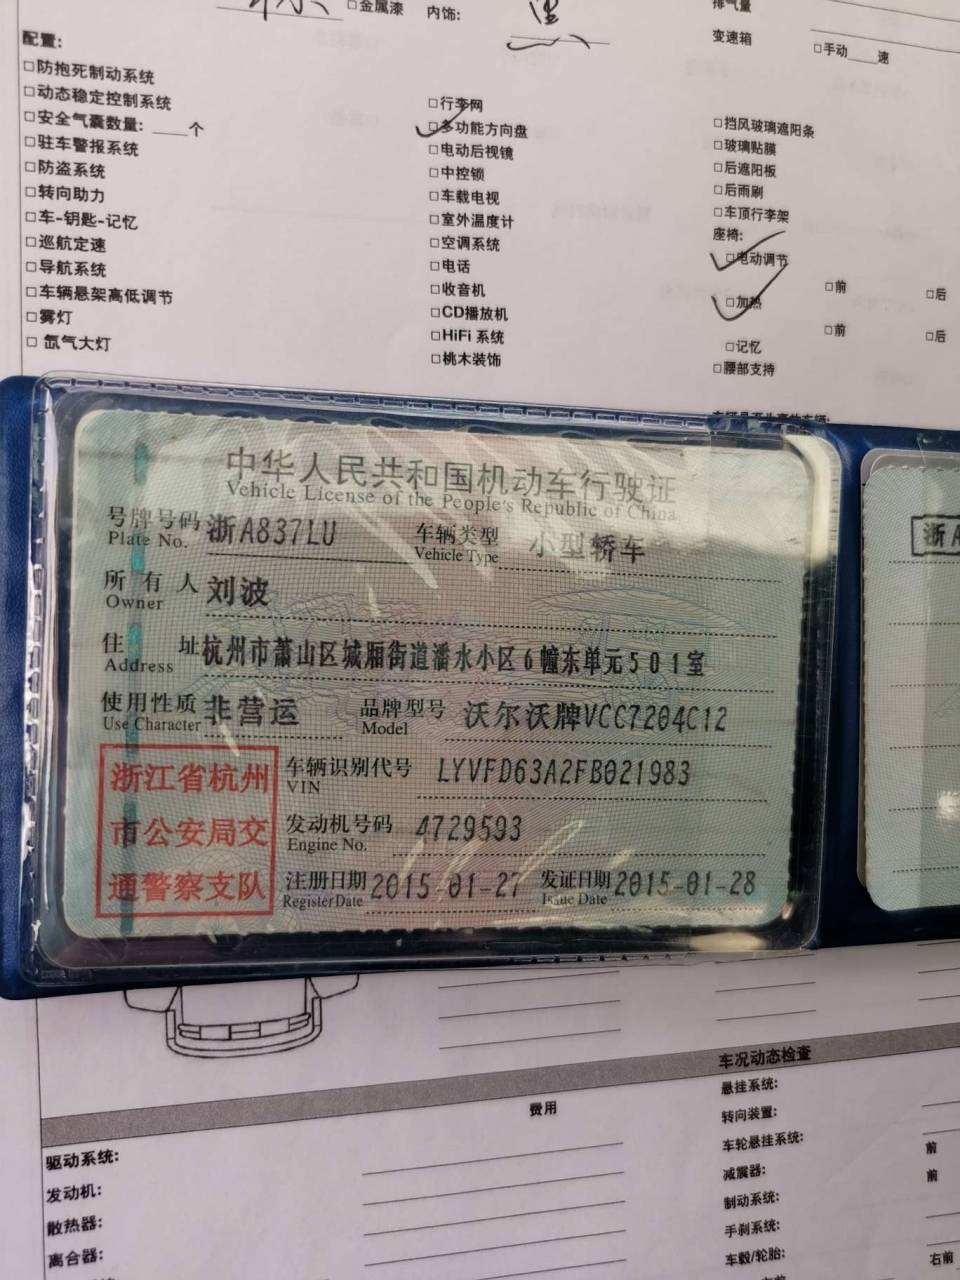 □金属漆 内饰: 黑
排气量
变速箱 □手动____速
配置:
□防抱死制动系统
□动态稳定控制系统
□安全气囊数量: ____个
□驻车警报系统
□防盗系统
□转向助力
□车-钥匙-记忆
□巡航定速
□导航系统
□车辆悬架高低调节
□雾灯
□ 氙气大灯
□行李网
□多功能方向盘
□电动后视镜
□中控锁
□车载电视
□室外温度计
□空调系统
□电话
□收音机
□CD播放机
□HiFi 系统
□桃木装饰
□挡风玻璃遮阳条
□玻璃贴膜
□后遮阳板
□后雨刷
□车顶行李架
座椅:
□电动调节
□前 □后
□加热
□前 □后
□记忆
□腰部支持
中华人民共和国机动车行驶证
Vehicle License of the People's Republic of China
号牌号码 浙A837LU 车辆类型 小型轿车
Plate No. Vehicle Type
所有人 刘波
Owner
住址 杭州市萧山区城厢街道潘水小区6幢东单元501室
Address
使用性质 非营运 品牌型号 沃尔沃牌VCC7204C12
Use Character Model
浙江省杭州
市公安局交
通警察支队
车辆识别代号 LYVFD63A2FB021983
VIN
发动机号码 4729593
Engine No.
注册日期 2015-01-27 发证日期 2015-01-28
Register Date Issue Date
浙A
费用
驱动系统:
发动机:
散热器:
离合器:
车况动态检查
悬挂系统:
转向装置:
车轮悬挂系统: 前
减震器: 前
制动系统:
手刹系统:
车毂/轮胎: 右前